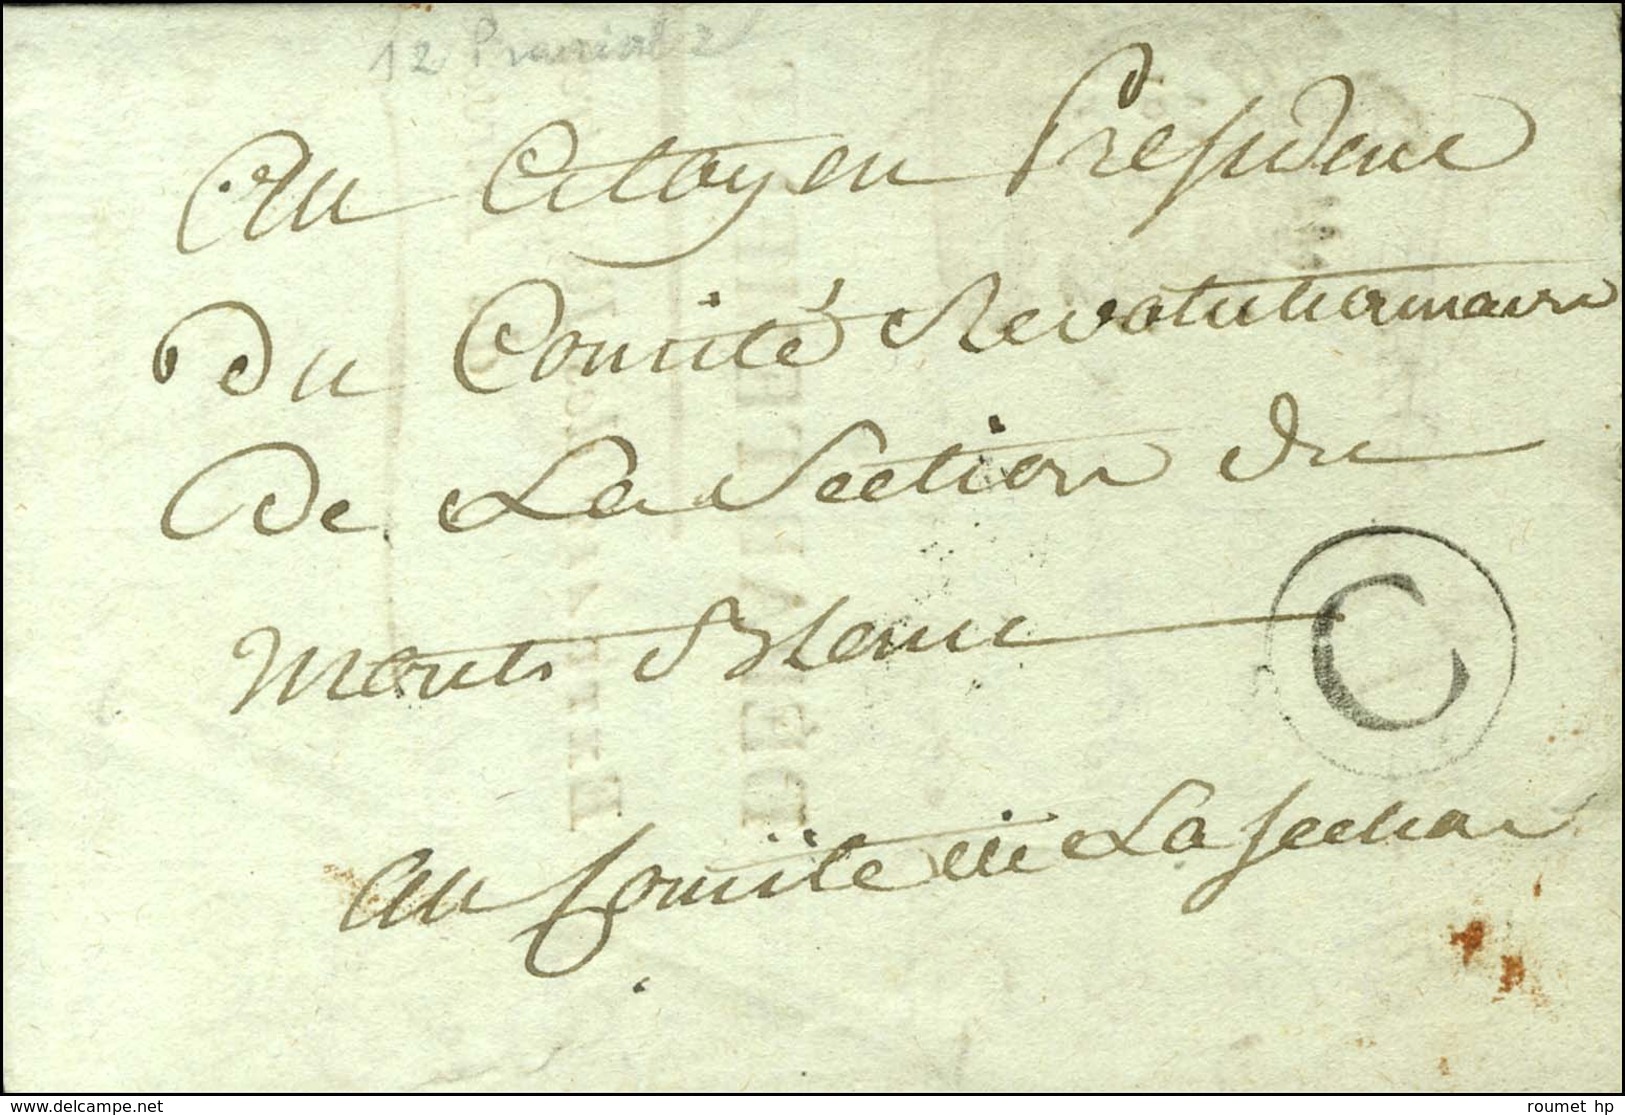 12 Prairial 2
Au Citoyen Presidene
Du Comité Revolutionnaire
De La Section du
Monts Blanc
C
au Comité de La Section
www.delcampe.net
roumet hp